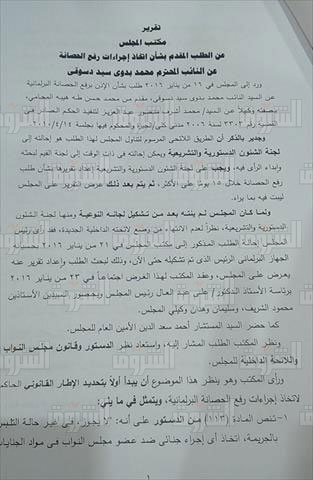 تقرير
مكتب المجلس
عن الطلب المقدم بشأن اتخاذ إجراءات رفع الحصانة
عن النائب المحترم محمد بدوى سيد دسوقى
ورد إلى المجلس في ١٦ من يناير ٢٠١٦ طلب بشأن الإذن برفع الحصانة البرلمانية
عن السيد النائب محمد بدوى سيد دسوقى، مقدم من محمد حسن طه هيبه المحامي،
بصفته وكيلا عن السيد/ محمد أشرف منصور عبد العزيز لتنفيذ الحكم الصادر في
القضية رقم ٣٣٠٢ لسنة ٢٠٠٦ مدنى كلى والمحكوم فيها بجلسة
وجدير بالذكر أن الطريق اللائحى المرسوم لتناول المجلس لهذا الطلب هو إحالته إلى
لجنة الشئون الدستورية والتشريعية ويمكن إحالته في ذات الوقت إلى لجنة القيم لبحثه
وإبداء الرأى فيه، ويجب على لجنة الشئون الدستورية والتشريعية إعداد تقريرها بشأن طلب
رفع الحصانة خلال ١٥ يومًا على الأكثر، ثم يتم بعد ذلك عرض التقرير على المجلس
ليبت فيه بما يراه.
ولما كان المجلس لم ينته بعد من تشكيل لجانه النوعية ومنها لجنة الشئون
الدستورية والتشريعية، نظرًا لعدم الانتهاء من وضع لائحته الداخلية الجديدة، فقد رأى رئيس
المجلس إحالة الطلب المذكور إلى مكتب المجلس في ٢١ من يناير ٢٠١٦ بحسبانه
الجهاز البرلماني الرئيس الذى تم تشكيله حتى الآن، وذلك لبحث الطلب وإعداد تقرير عنه
يعرض على المجلس، وعقد المكتب لهذا الغرض اجتماعًا في ٢٣ من يناير ٢٠١٦
برئاسة الأستاذ الدكتور/ على عبد العال رئيس المجلس وبحضور السيدين الأستاذين
محمود الشريف، وسليمان وهدان وكيلى المجلس.
كما حضر السيد المستشار أحمد سعد الدين الأمين العام للمجلس.
ونظر المكتب الطلب المشار إليه، واستعاد نظر الدستور وقانون مجلس النواب
واللائحة الداخلية للمجلس.
ورأى المكتب وهو ينظر هذا الموضوع أن يبدأ أولاً بتحديد الإطار القانونى الحاكم
لاتخاذ إجراءات رفع الحصانة البرلمانية، ويتمثل في ما يلي:
١- تنص المادة (١١٣) من الدستور على أنه: "لا يجوز، فى غير حالة التلبس
بالجريمة، اتخاذ أى إجراء جنائى ضد عضو مجلس النواب فى مواد الجنايات
١
الشروق